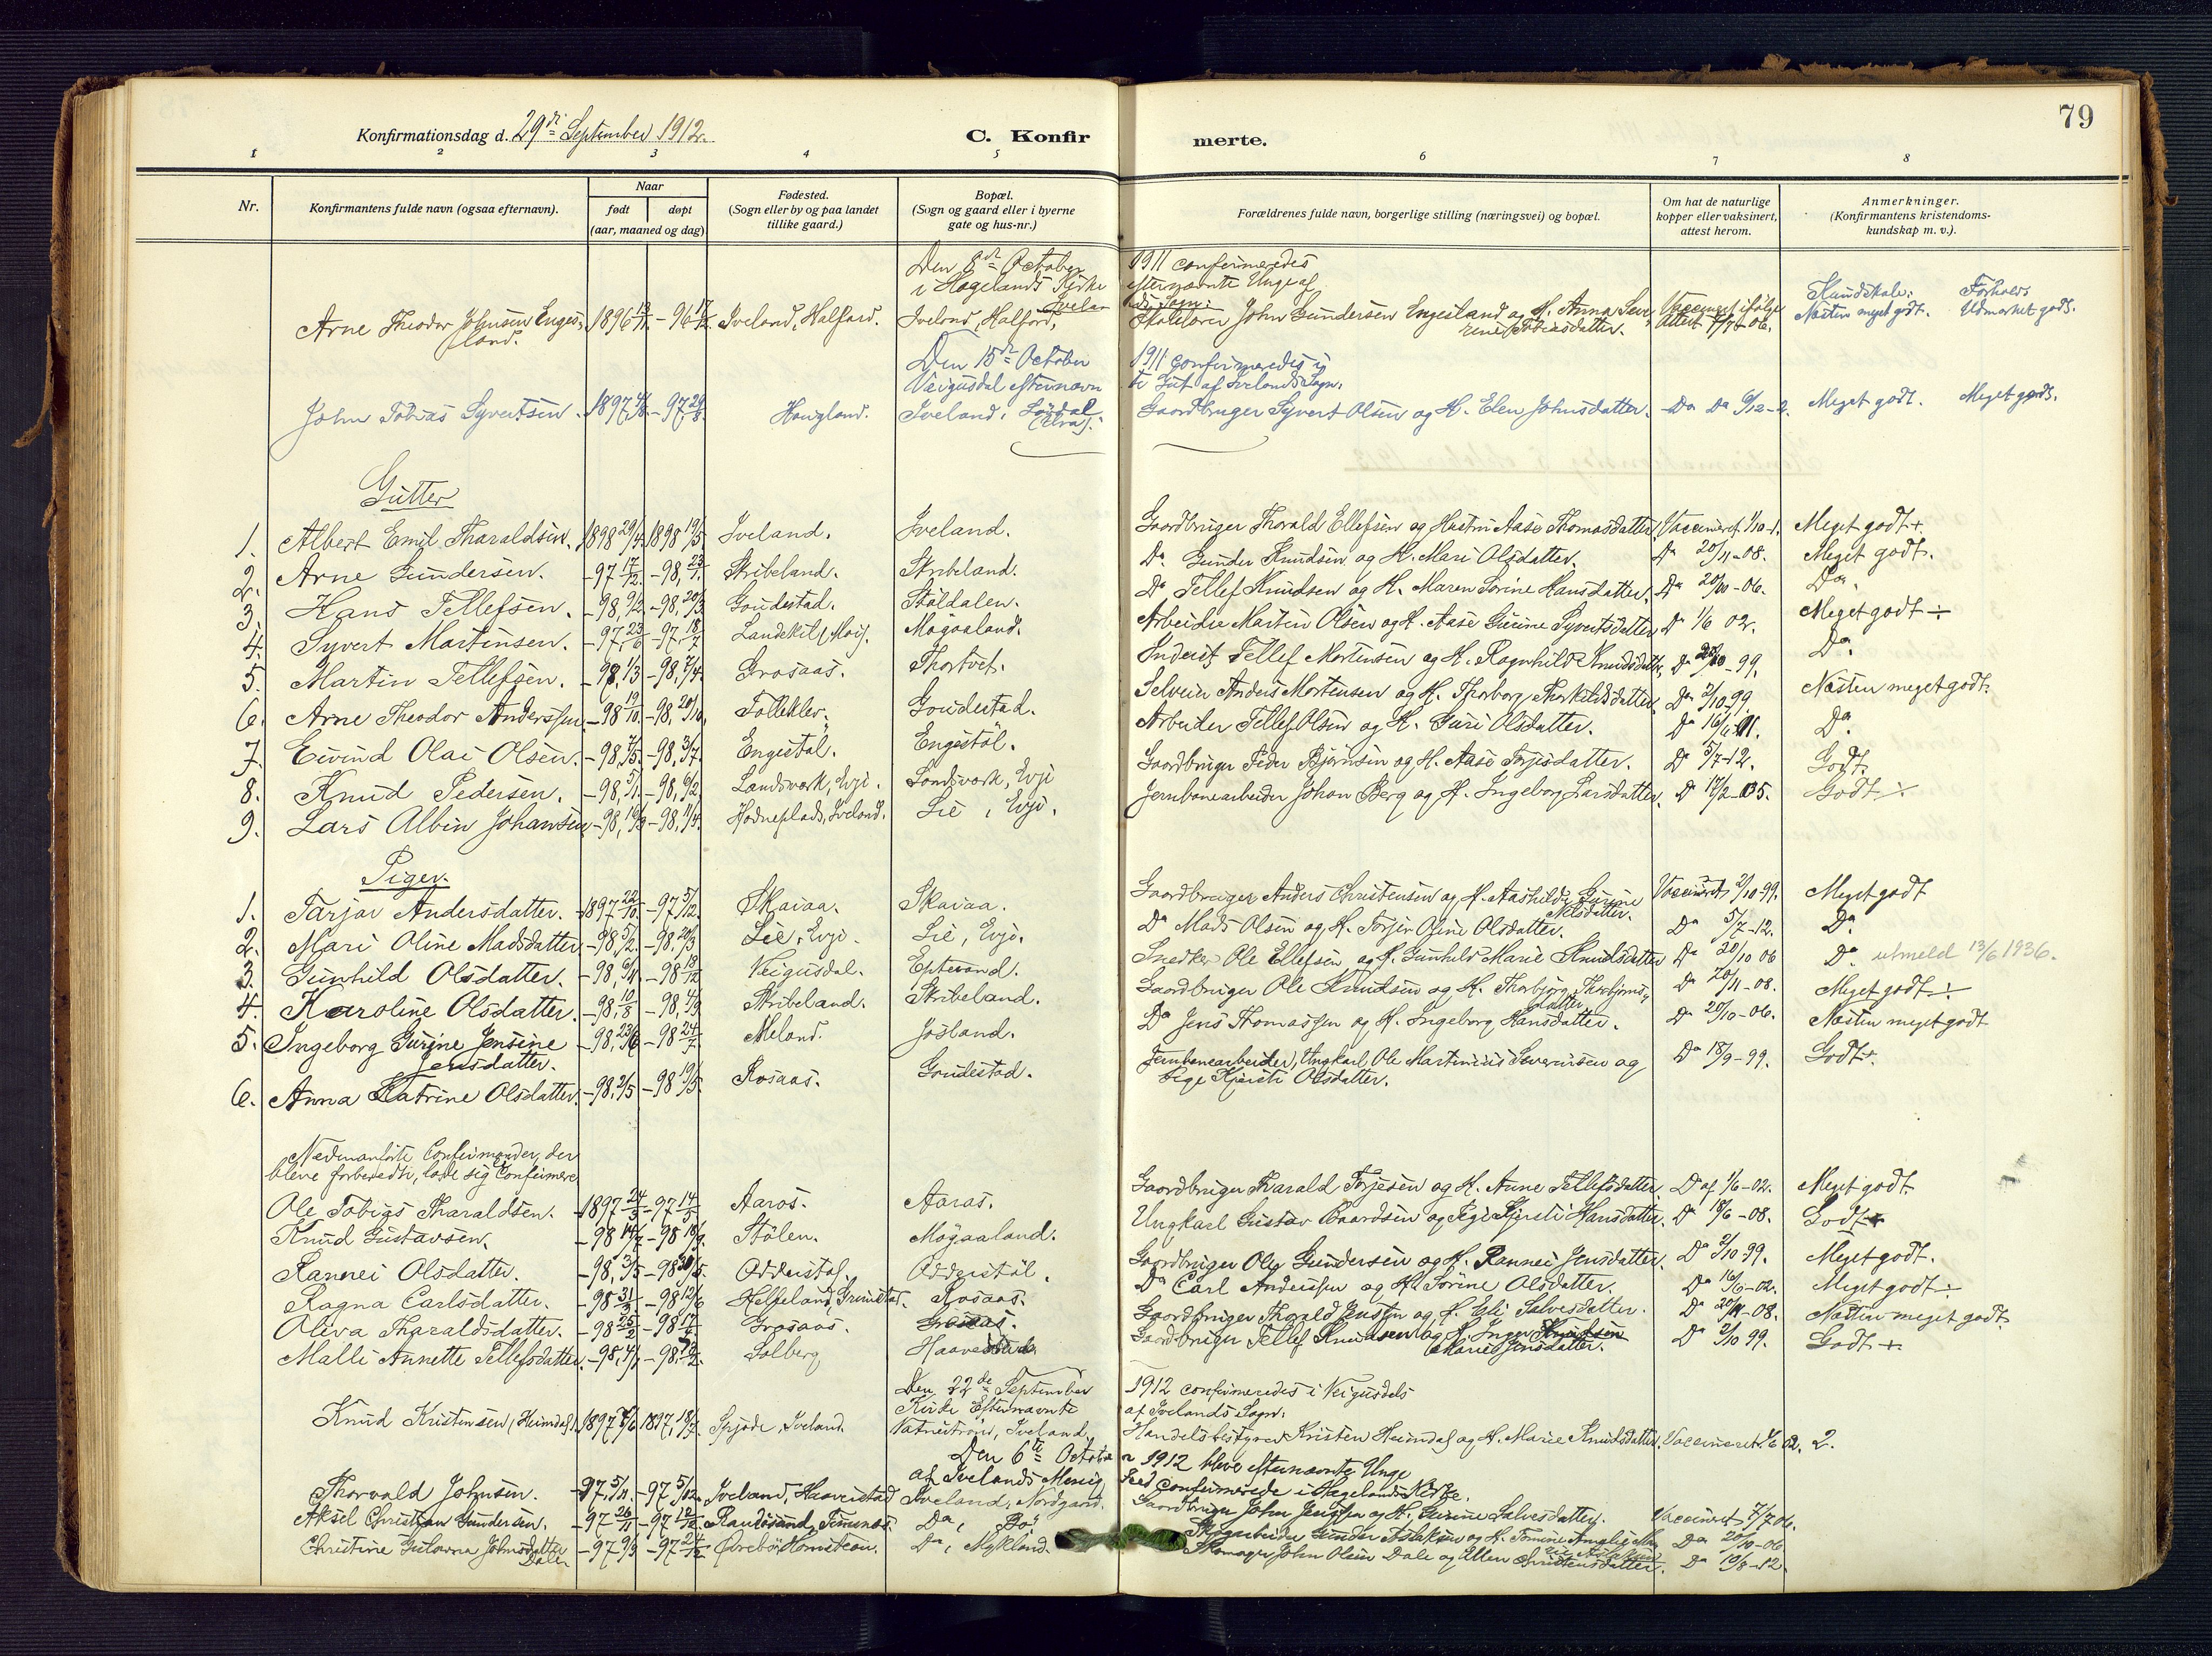 79
Konfirmationsdag d. 29de September 1912.
C. Konfir merte.
1 2 3 4 5 6 7 8
Nr.
Konfirmantens fulde navn (ogsaa efternavn).
Naar
født døpt
(aar, maaned og dag)
Fødested.
(Sogn eller by og paa landet
tillike gaard.)
Bopæl.
(Sogn og gaard eller i byerne
gate og hus-nr.)
Forældrenes fulde navn, borgerlige stilling (næringsvei) og bopæl.
Om hat de naturlige
kopper eller vaksinert,
attest herom.
Anmerkninger.
(Konfirmantens kristendoms-
kundskap m. v.).
Den 8de October 1911 confirmeredes
i Hægelands Kirke efternævnte Unge af
Ivelands Sogn:
Arne Theodor Johnsen Enges-
land. 1896 - 96 Iveland, Halfard. Iveland, Halfard, John Gundersen Engesland og H. Anna Seve-
rine Tobiasdatter. Vaccineret ifølge Attest 7/7-06. Kundskab: Næsten meget godt. Forhold Udmærket gods.
Den 15de October 1911 confirmeredes i
Veigusdal efternævnte Gut af Ivelands Sogn.
John Tobias Syvertsen. 1897 - 97 Haugland. Iveland, Gaardbruger Syvert Olsen og H. Elen Johnsdatter. Do Do 6/12-2. Meget godt. Meget gods.
Gutter
1. Albert Emil Tharaldsen. 1898 29/4 1898 19/5 Iveland. Iveland. Gaardbruger Thorald Ellefsen og Hustru Aase Thomasdatter. Vaccineret 1/10-1. Meget godt +
2. Arne Gundersen. - 97 17/12 - 98, 23/1. Skribeland. Skribeland. Do Gunder Knudsen og H. Mari Olsdatter. Do 20/11-08. Meget godt.
3. Hans Tellefsen. - 98, 9/2 - 98, 20/3 Goudestad. Støldalen. Do Tellef Knudsen og H. Maren Sorine Hansdatter. Do 20/10-06. Do.
4. Syvert Martinsen. - 97, 23/6 - 97, 18/7 Landskil (Moi). Mogaaland. Arbeider Martin Olsen og H. Aase Gurine Syvertsdatter Do 1/6 02. Meget godt ÷
5. Martin Tellefsen. - 98, 1/3 - 98, 7/4. Grosaas. Thortvet. Inderst Tellef Mortensen og H. Ragnhild Knudsdatter, Do 20/10-99. Do.
6. Arne Theodor Anderssen. - 98 19/10 - 98, 20/10. Tolleklev. Goudestad. Selveier Anders Mortensen og H. Thorborg Thorkildsdatter Do 2/10 99. Næsten meget godt.
7. Eivind Olai Olsen. - 98, 7/5 - 98, 3/7. Engestøl. Engestöl. Arbeider Tellef Olsen og H. Guri Olsdatter. Do 16/6-11. Do
8. Knud Pedersen. - 98, 5/1 - 98, 6/2. Landsverk, Evje. Landsverk, Evje Gaardbruger Peder Bjørnsen og H. Aase Terjesdatter. Do 5/7-12. Godt.
9. Lars Albin Johansen - 98, - 98, Hodneplads, Iveland. Lie, Evje. Jernbanearbeider Johan Berg og H. Ingeborg Larsdatter. Do 17/2-05. Godt ÷
Piger.
1. Tarjer Andersdatter. 1897 22/10 - 97 5/12. Skaiaa. Skaiaa. Gaardbruger Anders Christensen og H. Aashilde Gurine
Nelsdatter. Vaccineret 2/10-99. Meget godt
2. Mari Oline Madsdatter - 98, 5/2 - 98, 20/3 Lie, Evje. Lie, Evje. Do Mads Olsen og H. Torjer Oline Olsdatter. Do 5/7-12. Do
3. Gunhild Olsdatter. - 98, 6/11 - 98 18/12 Veigusdal. Eptevand. Snedker Ole Ellefsen og H. Gunhild Marie Knudsdatter Do 20/10 06 Do utmeld 13/6 1936.
4. Karoline Olsdatter. - 98, 10/8 - 98, 4/9 Skribeland. Skribeland. Gaardbruger Ole Knudsen og H. Thorbjørg Thorbjørns-
datter Do 20/11-08. Meget godt ÷
5. Ingeborg Gurine Jensine
Jensdatter. - 98, 23/6 - 98 24/7 Meland. Josland. Do Jens Thomassen og H. Ingeborg Hansdatter. Do 20/10-06. Næsten meget godt
6. Anna Katrine Olsdatter - 98, 2/5 - 98 19/5. Rosaas. Goudestad. Jernbanearbeider, Ungkarl Ole Martinius Severinsen og
Pige Kjersti Olsdatter. Do 18/9-99. Godt +
Nedenanførte Confirmander, der
bleve forberedte, lode sig confirmere
Ole Tobias Tharaldsen. 1897 24/3 - 97 14/5 Aaros. Aaras. Gaardbruger Tharald Terjesen og H. Anne Tellefsdatter. Do af 1/6-02. Meget godt.
Knud Gustavsen. - 98 14/7 - 98 18/9. Stölen. Mogaaland. Ungkarl Gustav Baardsen og Pige Kjersti Hansdatter. Do 18/6-08. Godt +
Rannei Olsdatter. - 98, 3/5 - 98 30/5. Odderstøl. Odderstöl. Gaardbruger Ole Gundersen og H. Rannei Jensdatter. Do 2/10 99. Meget godt.
Ragna Carlsdatter. - 98 31/3 - 98 12/6 Helleland, Grimstad. Rosaas. Do Carl Anderssen og H. Sorine Olsdatter. Do 16/9-02. Meget godt ÷
Oleva Tharaldsdatter. - 98 25/2 - 98 17/4 Grosaas. Grosaas. Gaardbruger Thorald Jenssen og H. Egli Salvesdatter. Do 20/11-08. Næsten meget godt.
Malli Annette Tellefsdatter. - 98, 4/1 - 98, Solberg Gaardbruger Tellef Knudsen og H. Inger Knudsen
Marie Jensdatter. Do 2/10 99. Godt +
Den 22de September 1912 confirmeredes i Veigusdels
Kirke Efternævnte af Ivelands Sogn:
Knud Kristensen (Heimdal). 1897 1897, Iveland. Vatnestrøm, Iveland Handelsbestyrer Kristen Heimdal og H. Marie Knudsdatter. Vaccineret 1/6 02. 2.
Den 6te October 1912 bleve efternævnte Unge
af Ivelands Menighed confirmerede i Hægelands Kirke.
Thorvald Johnsen. - 97 5/11. - 97 5/12. Iveland, Haaverstad Iveland, Nordgard. Gaardbruger John Jenssen og H. Gurine Salvesdatter. Vaccineret 7/7 06.
Aksel Christian Gundersen. - 97 26/11 - 97 12/12 Randøsund, Do, Bö Skogarbeider Gunder Aslaksen og H. Do 20/10-06
Christine Johnsdatter
Dale - 97 9/9 - 97 Øvrebø Homsteau. Do, Mykland. Skomager John Olsen Dale og Ellen Christensdatter. Do 10/8-12.